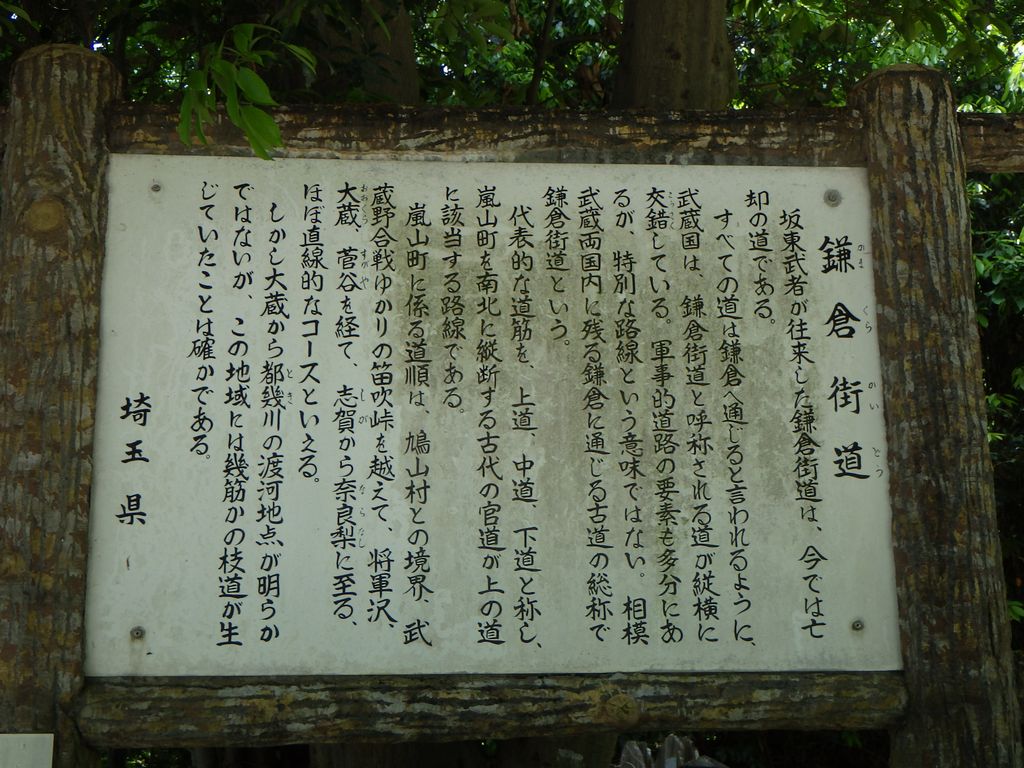 鎌倉街道
坂東武者が往来した鎌倉街道は、今では亡
却の道である。
すべての道は鎌倉へ通じると言われるように、
武蔵国は、鎌倉街道と呼称される道が縦横に
交錯している。軍事的道路の要素も多分にあ
るが、特別な路線という意味ではない。相模
武蔵両国内に残る鎌倉に通じる古道の総称で
鎌倉街道という。
代表的な道筋を、上道、中道、下道と称し、
嵐山町を南北に縦断する古代の官道が上の道
に該当する路線である。
嵐山町に係る道順は、鳩山村との境界、武
蔵野合戦ゆかりの笛吹峠を越えて、将軍沢、
大蔵、菅谷を経て、志賀から奈良梨に至る、
ほぼ直線的なコースといえる。
しかし大蔵から都幾川の渡河地点が明らか
ではないが、この地域には幾筋かの枝道が生
じていたことは確かである。
埼玉県